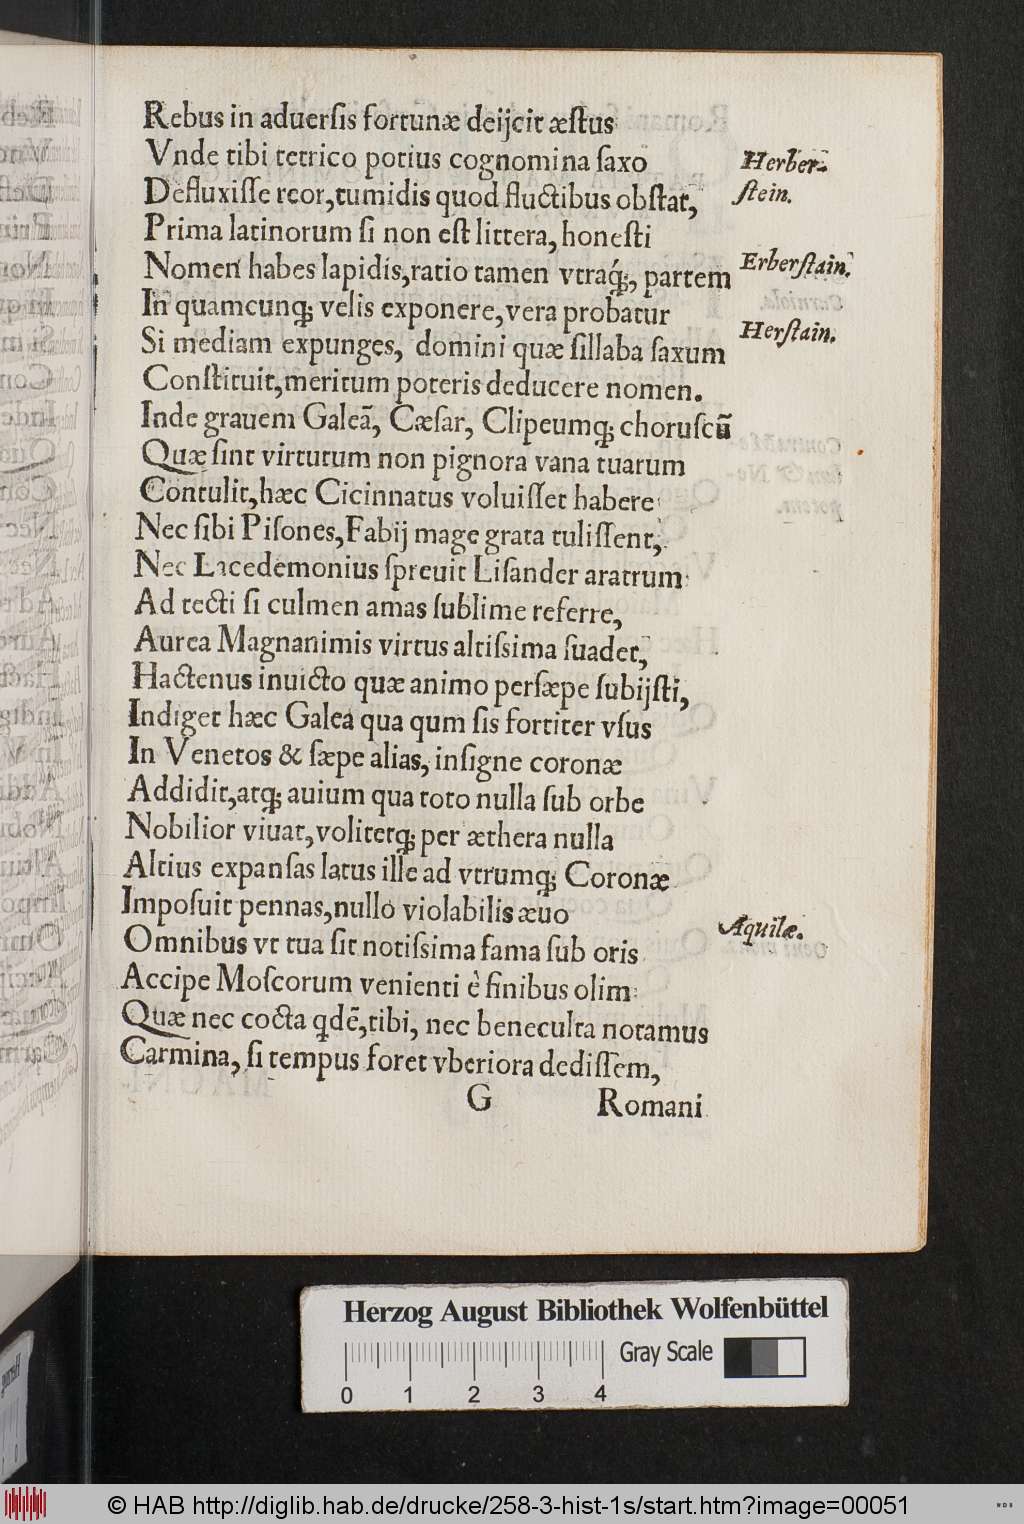 Rebus in aduerſis fortunæ deijcit æſtus
Vnde tibi tetrico potius cognomina ſaxo
Defluxiſſe reor, tumidis quod fluctibus obſtat,
Prima latinorum ſi non eſt littera, honeſti
Nomen habes lapidis, ratio tamen vtraq́;, partem
In quamcunq; velis exponere, vera probatur
Si mediam expunges, domini quæ ſillaba ſaxum
Conſtituit, meritum poteris deducere nomen.
Inde grauem Galeã, Cæſar, Clipeumq; choruſcũ
Quæ ſint virtutum non pignora vana tuarum
Contulit, hæc Cicinnatus voluiſſet habere
Nec ſibi Piſones, Fabij mage grata tuliſſent,
Nec Lacedemonius ſpreuit Liſander aratrum
Ad tecti ſi culmen amas ſublime referre,
Aurea Magnanimis virtus altiſsima ſuadet,
Hactenus inuicto quæ animo perſæpe ſubijſti,
Indiget hæc Galea qua qum ſis fortiter vſus
In Venetos & ſæpe alias, inſigne coronæ
Addidit, atq; auium qua toto nulla ſub orbe
Nobilior viuat, voliterq; per æthera nulla
Altius expanſas latus ille ad vtrumq; Coronæ
Impoſuit pennas, nullo violabilis æuo
Omnibus vt tua ſit notiſsima fama ſub oris
Accipe Moſcorum venienti è finibus olim
Quæ nec cocta qdẽ, tibi, nec beneculta notamus
Carmina, ſi tempus foret vberiora dediſſem,
G Romani
Herber-
ſtein.
Erberſtain.
Herſtain.
Aquilæ.
Herzog August Bibliothek Wolfenbüttel
Gray Scale
0 1 2 3 4
© HAB http://diglib.hab.de/drucke/258-3-hist-1s/start.htm?image=00051